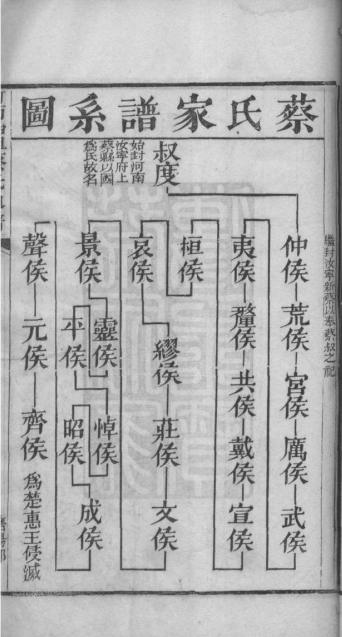 蔡氏家譜系圖
叔度
始封河南
汝寧府上
蔡縣以國
為氏故名
繼封汝寧新蔡以奉蔡叔之祀
仲侯 荒侯 宮侯 厲侯 武侯
夷侯 釐侯 共侯 戴侯 宣侯
桓侯
哀侯 繆侯 莊侯 文侯
景侯 靈侯 平侯 悼侯 昭侯 成侯
聲侯 元侯 齊侯 為楚惠王侵滅
濟陽郡